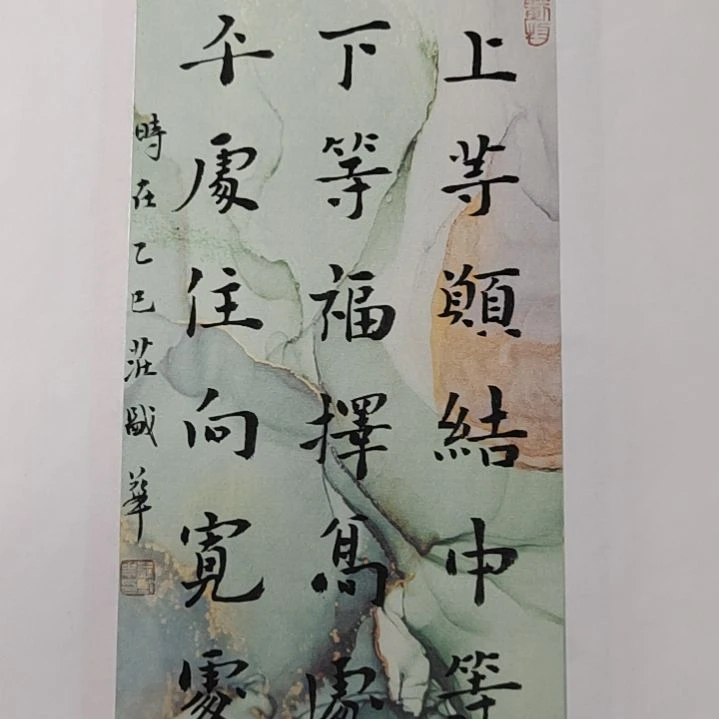 上等願結中等
下等福擇高處
平處住向寬處
時在乙巳莊盛華